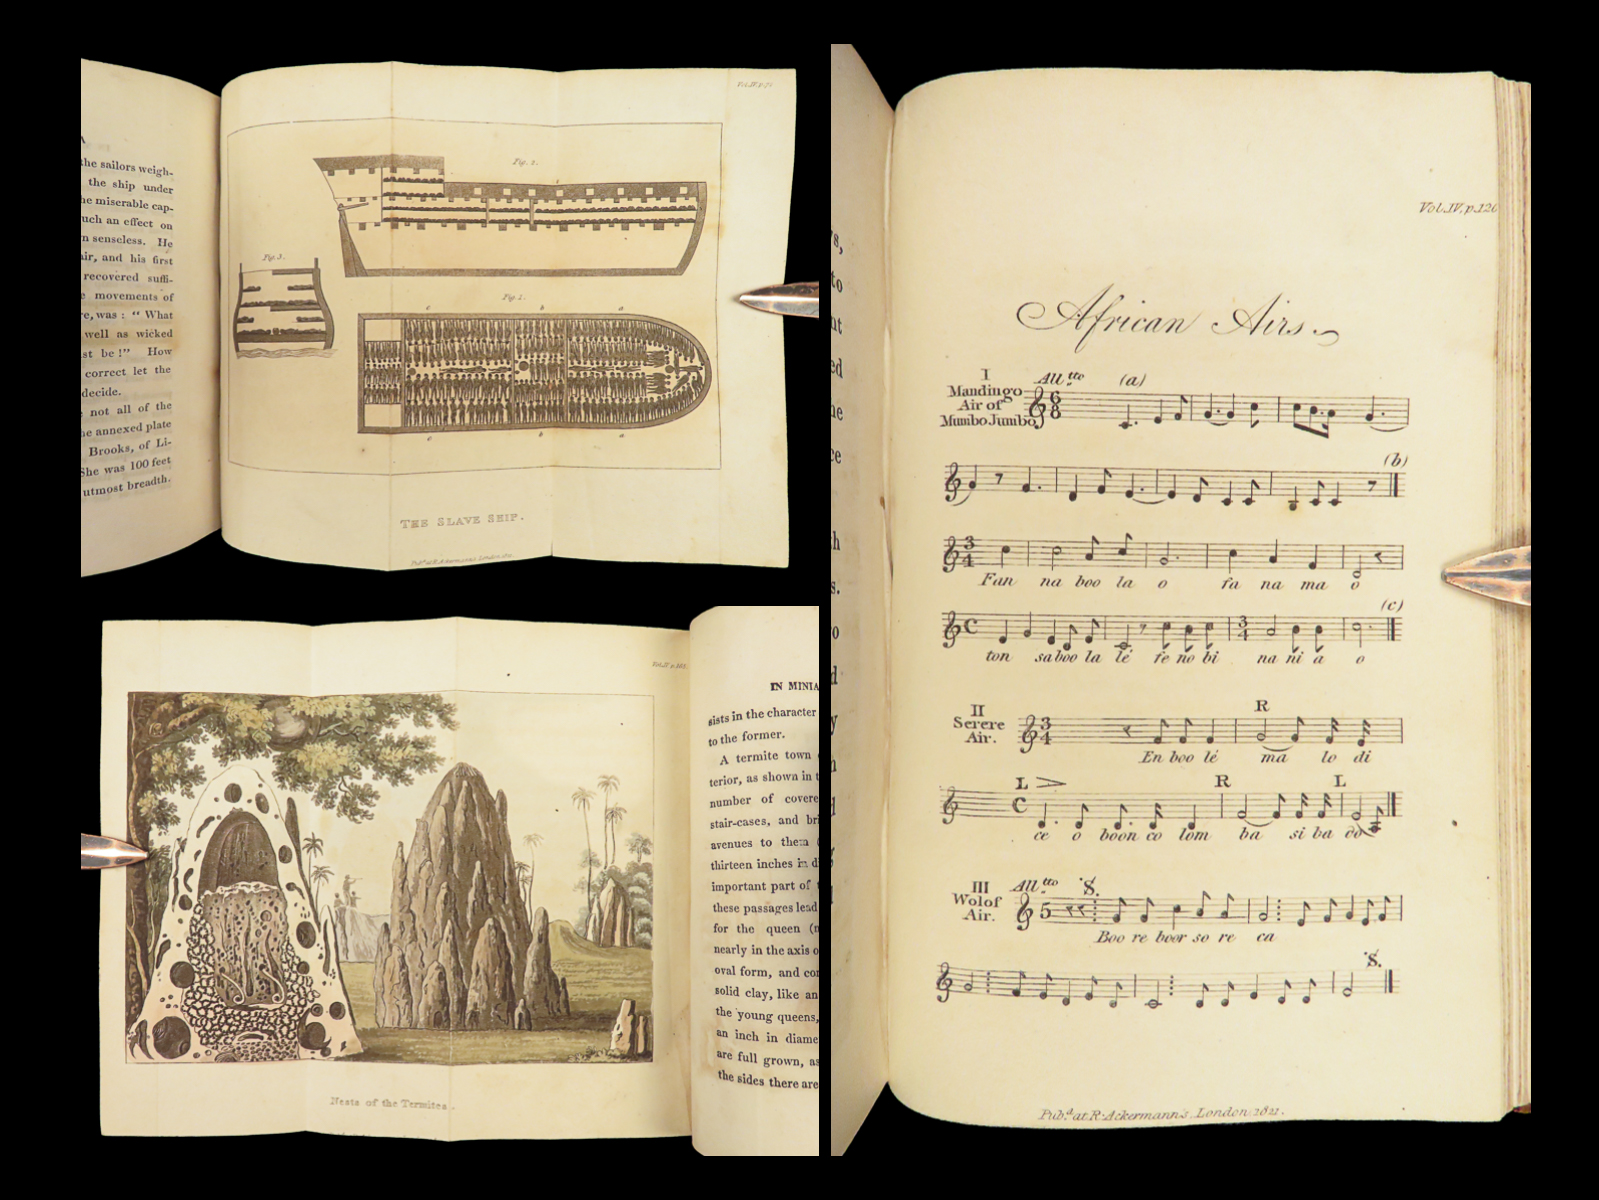 A
the sailors weigh-
the ship under
he miserable cap-
uch an effect on
n senseless. He
air, and his first
recovered suffi-
e movements of
re, was : “ What
well as wicked
st be !” How
correct let the
decide.
not all of the
he annexed plate
Brooks, of Li-
She was 100 feet
utmost breadth.
Fig. 2.
Fig. 3.
c b a
c b a
THE SLAVE SHIP.
Pubd. at R. Ackermann's, London
Nests of the Termites.
IN MINIA
sists in the character
to the former.
A termite town
terior, as shown in t
number of covere
stair-cases, and bri
avenues to them
thirteen inches in d
important part of
these passages lead
for the queen (n
nearly in the axis o
oval form, and con
solid clay, like an
the young queens,
an inch in diame
are full grown, as
the sides there are
Vol. IV. p. 126
African Airs.
I
Mandingo
Air of
Mumbo Jumbo
All tto (a)
6
8
(b)
3
4
Fan na boo la o fa na ma o
(c)
C 3
4
ton sa boo la lé fe no bi na ni a o
II
Serere
Air.
3
4
R
En boo lé ma lo di
L R L
C
ce o boon co lom ba si ba do
III
Wolof
Air.
All tto S.
5
Boo re boor so re ca
S.
Pubd. at R. Ackermann's, London 1821.